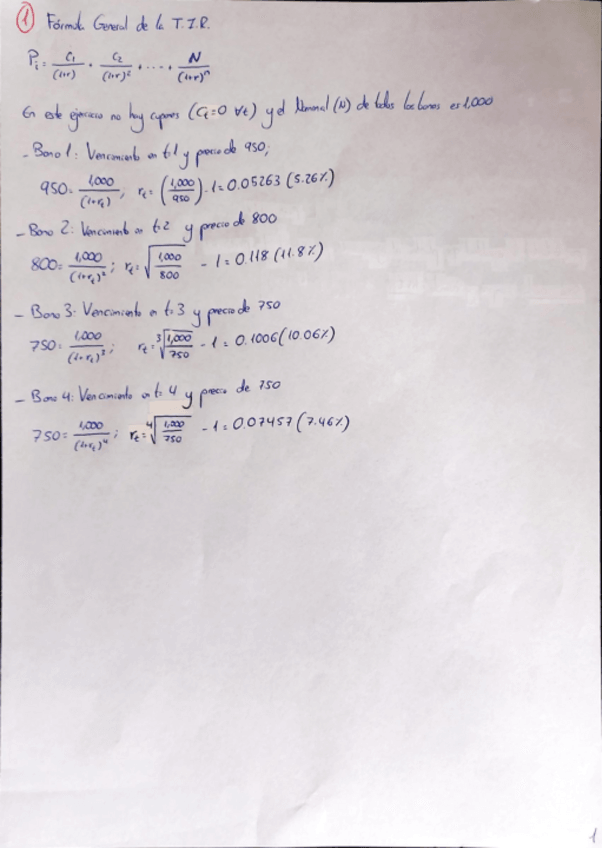 1 Fórmula General de la T.I.R.
Pi = C1/(1+r) + C2/(1+r)² + .... + N/(1+r)ⁿ
En este ejercicio no hay cupones (Ct=0 ∀t) y el Nominal (N) de todos los bonos es 1,000
- Bono 1: Vencimiento en t=1 y precio de 950;
950 = 1,000/(1+rt); rt = (1,000/950) - 1 = 0.05263 (5.26%)
- Bono 2: Vencimiento en t=2 y precio de 800
800 = 1,000/(1+rt)²; rt = √(1,000/800) - 1 = 0.118 (11.8%)
- Bono 3: Vencimiento en t=3 y precio de 750
750 = 1,000/(1+rt)³; rt = ³√(1,000/750) - 1 = 0.1006 (10.06%)
- Bono 4: Vencimiento en t=4 y precio de 750
750 = 1,000/(1+rt)⁴; rt = ⁴√(1,000/750) - 1 = 0.07457 (7.46%)
1